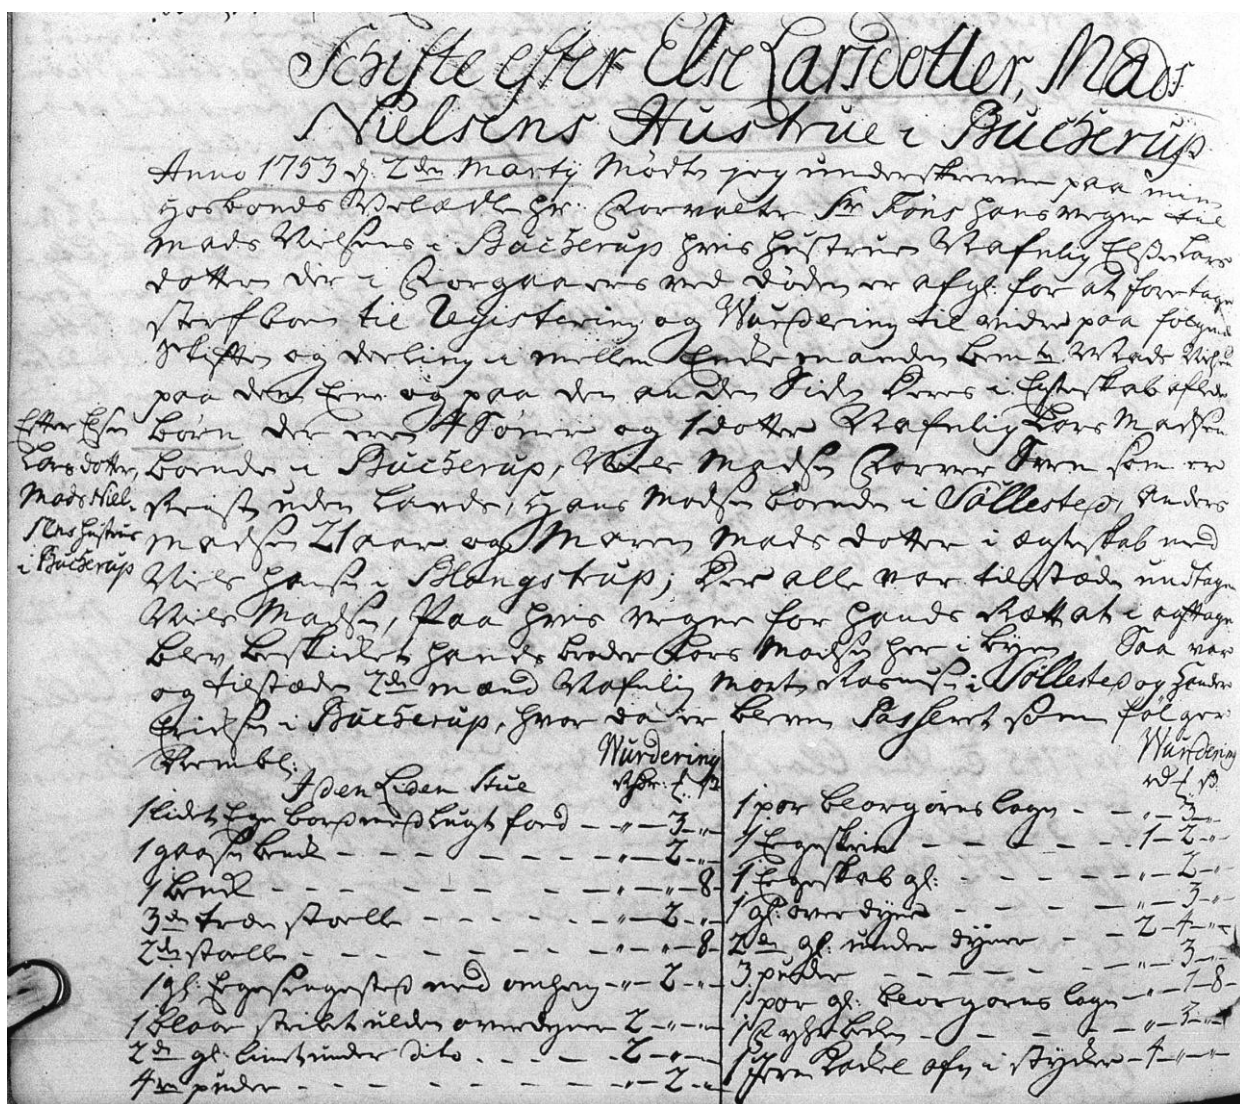 Schifte efter Else Larsdotter, Mads
Nielsens Hustrue i Bucherup
Anno 1753 d. 2den Marty Mødte jeg underskrevne paa min
Hosbonds Velædle Hr. Forvalter Sr Føns hans vegne til
Mads Nielsens i Bucherup hvis hustrue Nafnlig Else Lars
dotter der i Forgaaers ved døden er afgl: for at foretage
sterfboen til Registering og Wurdering til videre paa følgende
Skifte og deeling i mellem Enke manden bemte Mads Nielsen
paa den Eene og paa den anden Side Deres i Egteskab aflede
børn der ere 4 Sønner og 1 dotter Nafnlig Lars Madsen
boende i Bucherup, Niels Madsen Farver Sven som er
Reist uden Lands, Hans Madsen boende i Søllested, Anders
Madsen 21 aar og Maren Mads dotter i ægteskab med
Niels Hansen i Blangstrup; Der alle var tilstæde undtagen
Niels Madsen, Paa hvis vegne for hands Rætt at i agttage
blev beskicket hands broder Lars Madsen her i byen, Saa var
og tilstæde 2de mænd Nafnlig Morten Rasmusen i Søllested og Hendr
Erichsen i Bucherup, hvor da er bleven Passeret som følger
Efter Else
Lars dotter,
Mads Niel-
sens hustrue
i Bucherup
Nembl:
I den Liden Stue
Wurdering
Rdr: ₰ ß
1 lidet Ege bord med Lugt foed - " - 3 - "
1 gaasebenk - " - 2 - "
1 benk - " - " - 8
3de træe stoelle - " - 2 - "
2de stoelle - " - " - 8
1 gl: Egesengested med omheng - " - 2 - "
1 blaae stribt ulden overdyne 2 - " - "
2de gl: under dito - 2 - "
4re puder - " - 2 - "
Wurdering
rd ₰ ß
1 par blaargarns lagen - " - 3 - "
1 Egeskrin - 1 - 2 - "
1 Egeskab gl: - " - 2 - "
1 gl: over dyne - " - 3 - "
2de gl: under dyner - 2 - 4 - "
3 puder - " - 3 - "
1 par gl: blaargarns lagen - " - 1 - 8
- " - 3 - "
1 Jern Kackel ofn i stycker - 4 - " - "